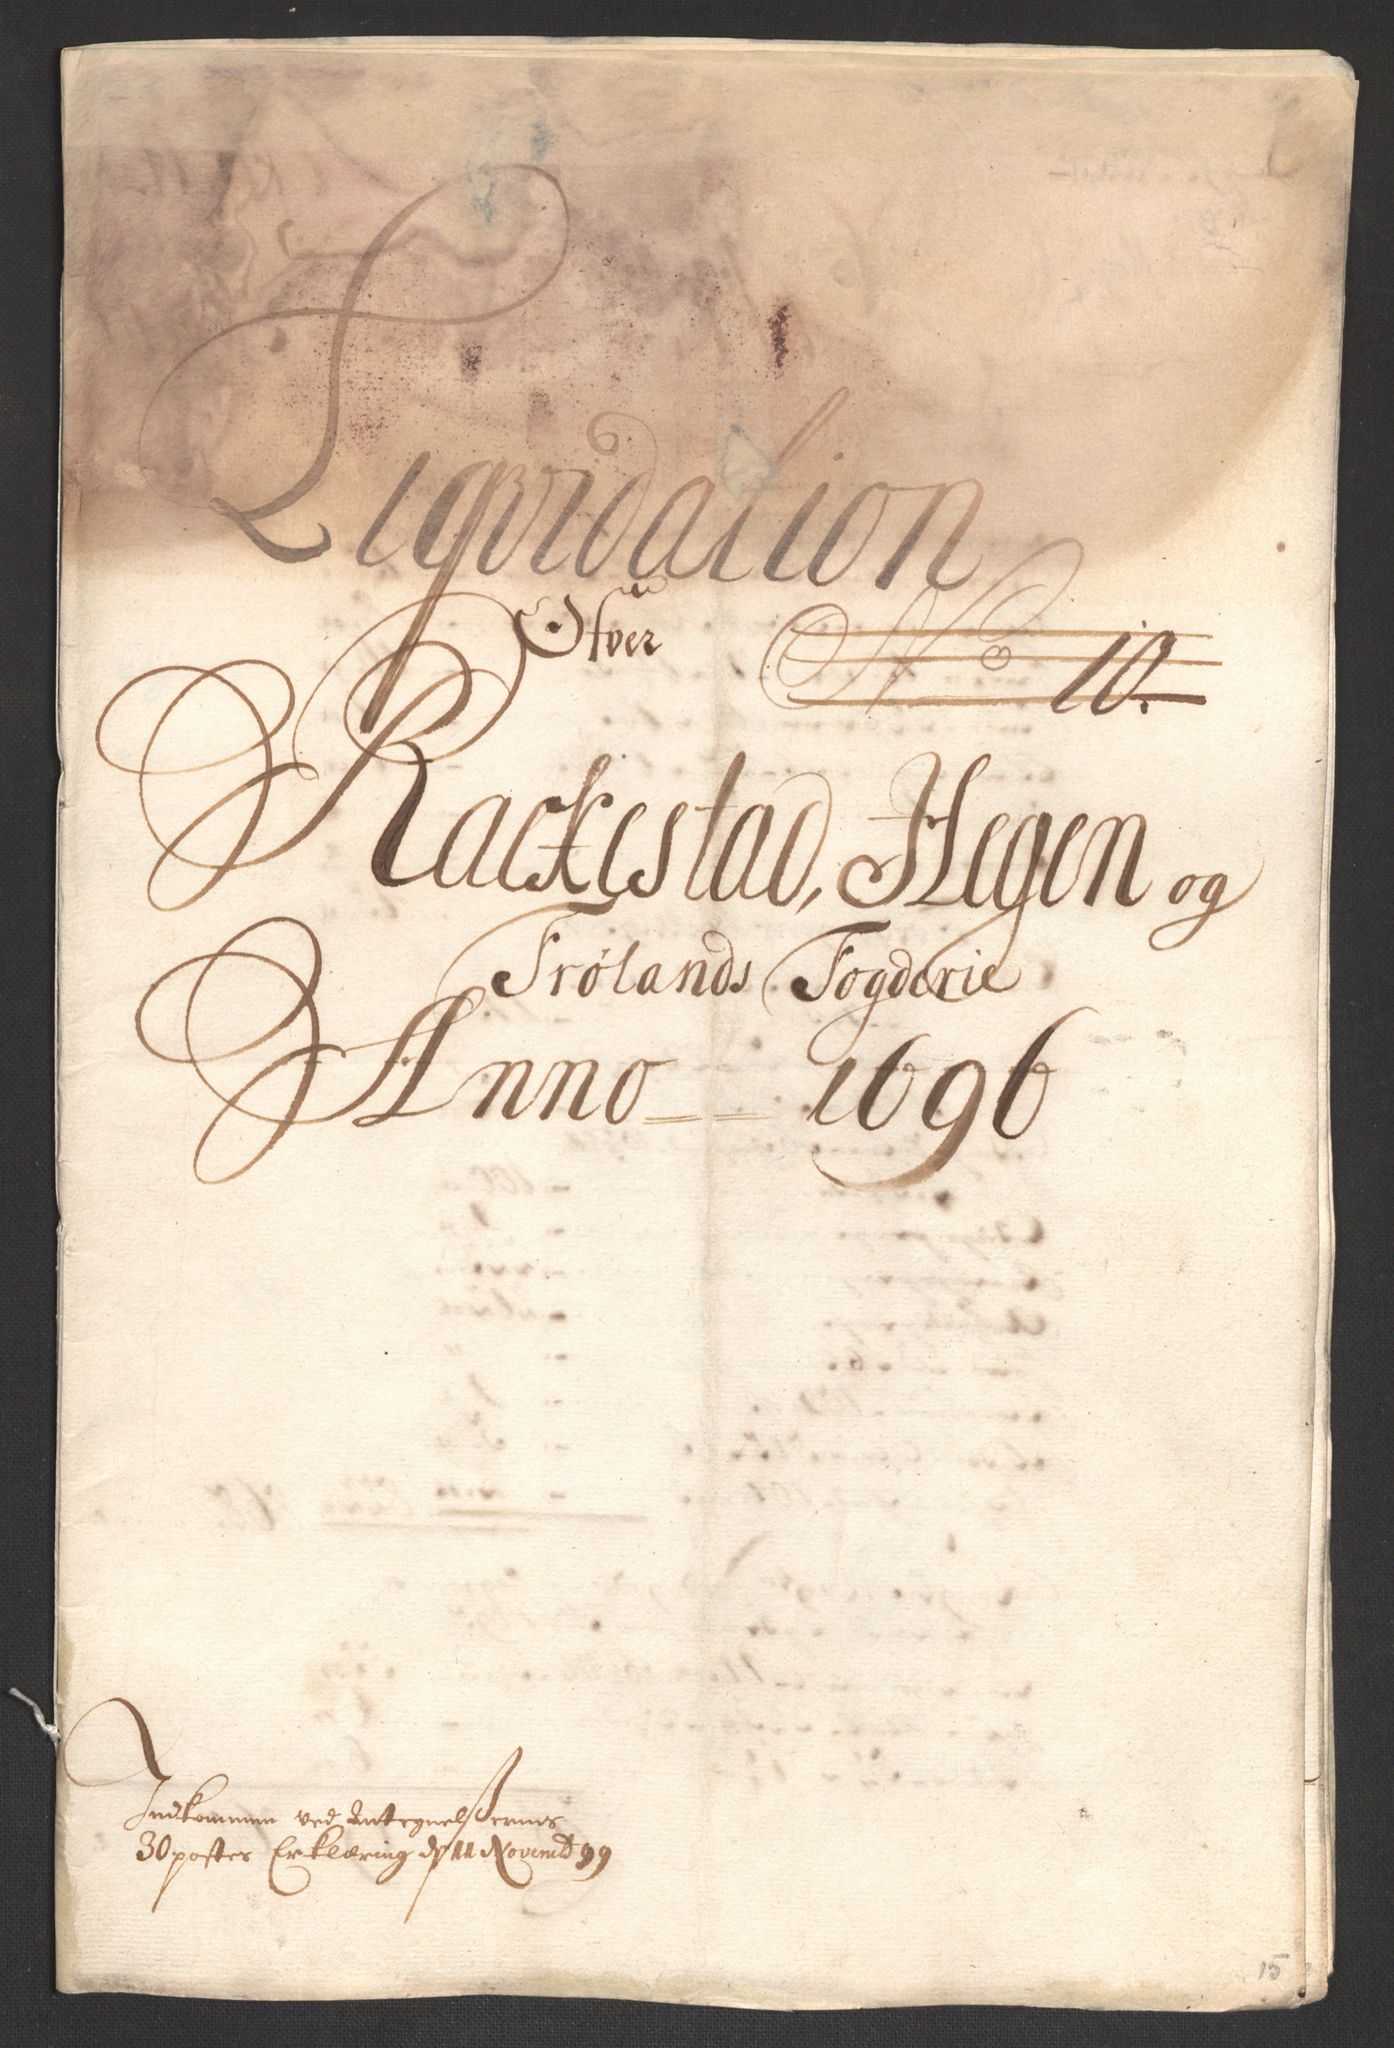 Liqvidation
Ofver
No 10.
Rackestad, Hegen og
Frølands Fogderie
Anno 1696
Indkommen ved Antegnelsernes
30 postes Erklæring dn 11 Novemb 99
15